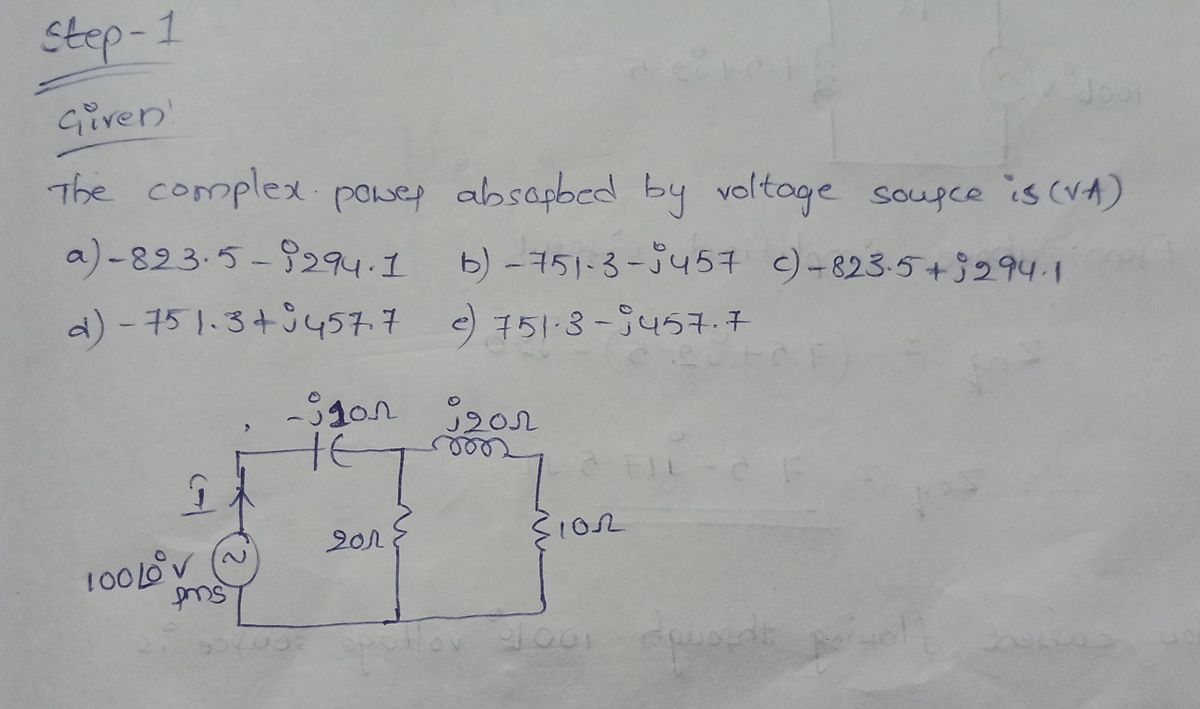 Step-1
Given
The complex power absorbed by voltage source is (VA)
a) -823.5 - j294.1 b) -751.3 - j457 c) -823.5 + j294.1
d) -751.3 + j457.7 e) 751.3 - j457.7
-j10Ω j20Ω
I
20Ω 10Ω
100∠0° V
rms